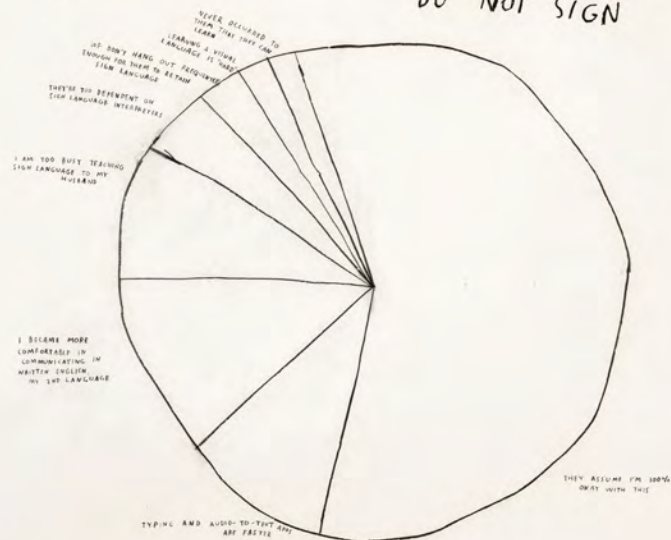 DO NOT SIGN
NEVER OCCURRED TO
THEM THAT THEY CAN
LEARN
LEARNING A VISUAL
LANGUAGE IS "HARD"
WE DON'T HANG OUT FREQUENTLY
ENOUGH FOR THEM TO RETAIN
SIGN LANGUAGE
THEY'RE TOO DEPENDENT ON
SIGN LANGUAGE INTERPRETERS
I AM TOO BUSY TEACHING
SIGN LANGUAGE TO MY
HUSBAND
I BECAME MORE
COMFORTABLE IN
COMMUNICATING IN
WRITTEN ENGLISH,
MY 2ND LANGUAGE
THEY ASSUME I'M 100%
OKAY WITH THIS
TYPING AND AUDIO-TO-TEXT APPS
ARE FASTER